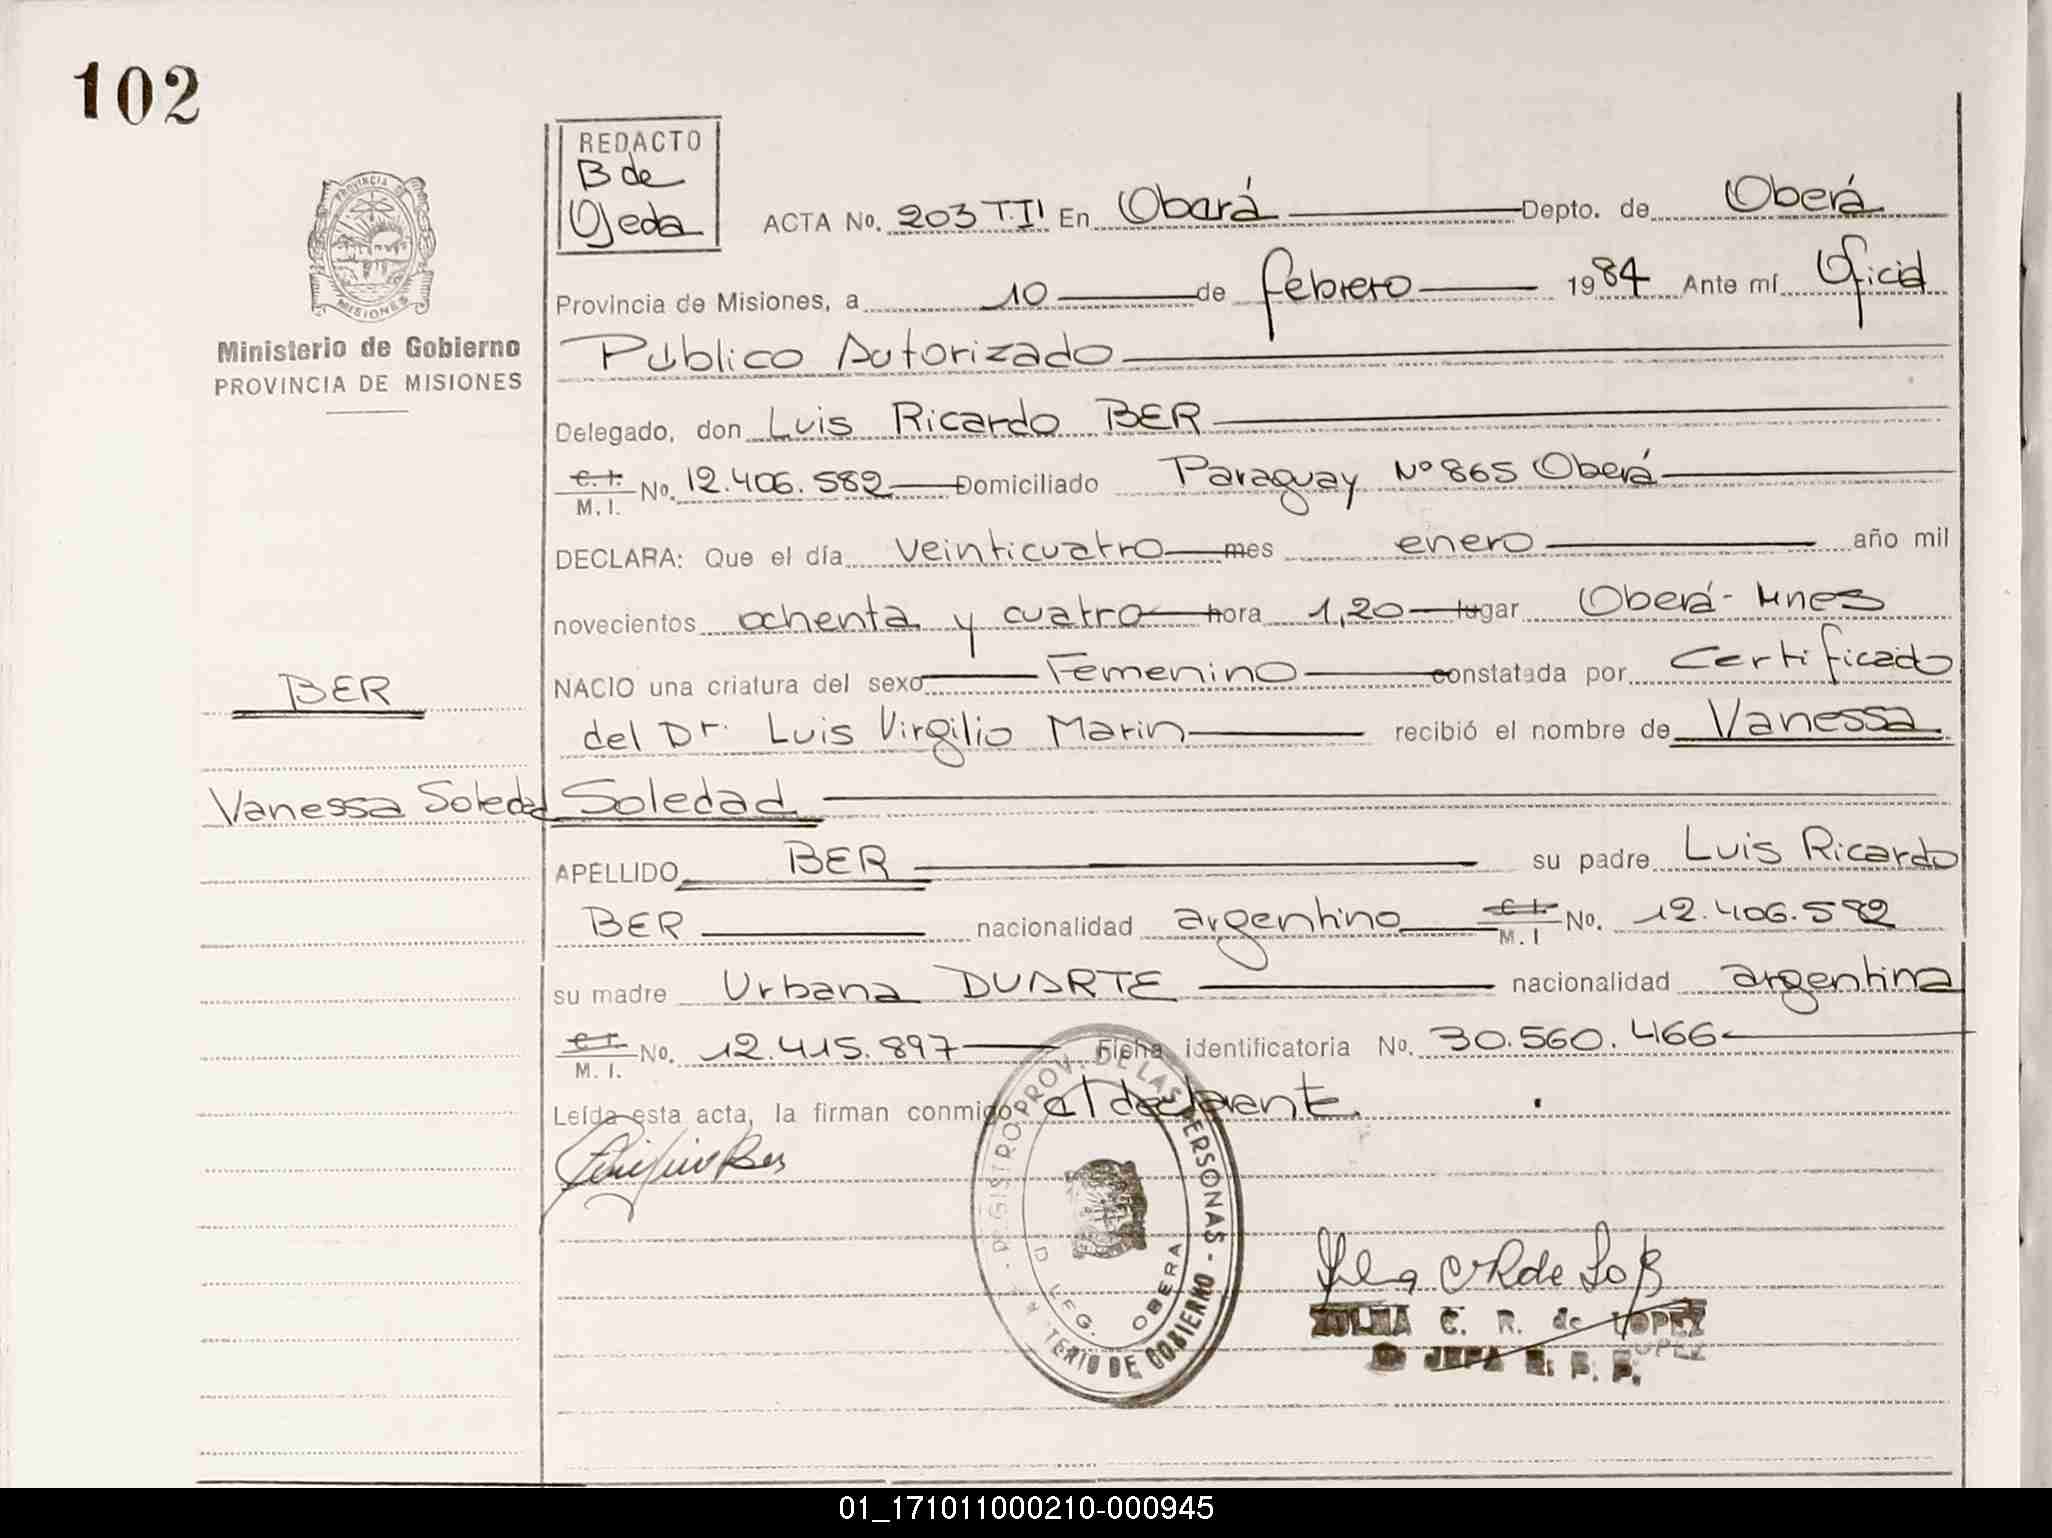 102
REDACTO
B de
Ojeda
ACTA No. 203 T.II En Oberá Depto. de Oberá
PROVINCIA DE MISIONES
Provincia de Misiones, a 10 de febrero 1984 Ante mí Oficial
Ministerio de Gobierno
PROVINCIA DE MISIONES
Público Autorizado
Delegado, don Luis Ricardo BER
C.I. M.I. No. 12.406.582 Domiciliado Paraguay Nº 865 Oberá
DECLARA: Que el día veinticuatro mes enero año mil
novecientos ochenta y cuatro hora 1,20 lugar Oberá - Mnes
BER
NACIO una criatura del sexo Femenino constatada por Certificado
del Dr. Luis Virgilio Marin recibió el nombre de Vanessa
Vanessa Soledad
Soledad
APELLIDO BER su padre Luis Ricardo
BER nacionalidad argentino C.I. M.I No. 12.406.582
su madre Urbana DUARTE nacionalidad argentina
C.I. M.I. No. 12.415.897 Ficha identificatoria No. 30.560.466
Leída esta acta, la firman conmigo el declarante.
REGISTRO PROV. DE LAS PERSONAS - MINISTERIO DE GOBIERNO
DELEG. OBERA
ZULMA C. R. de LOPEZ
JEFA
01_171011000210-000945